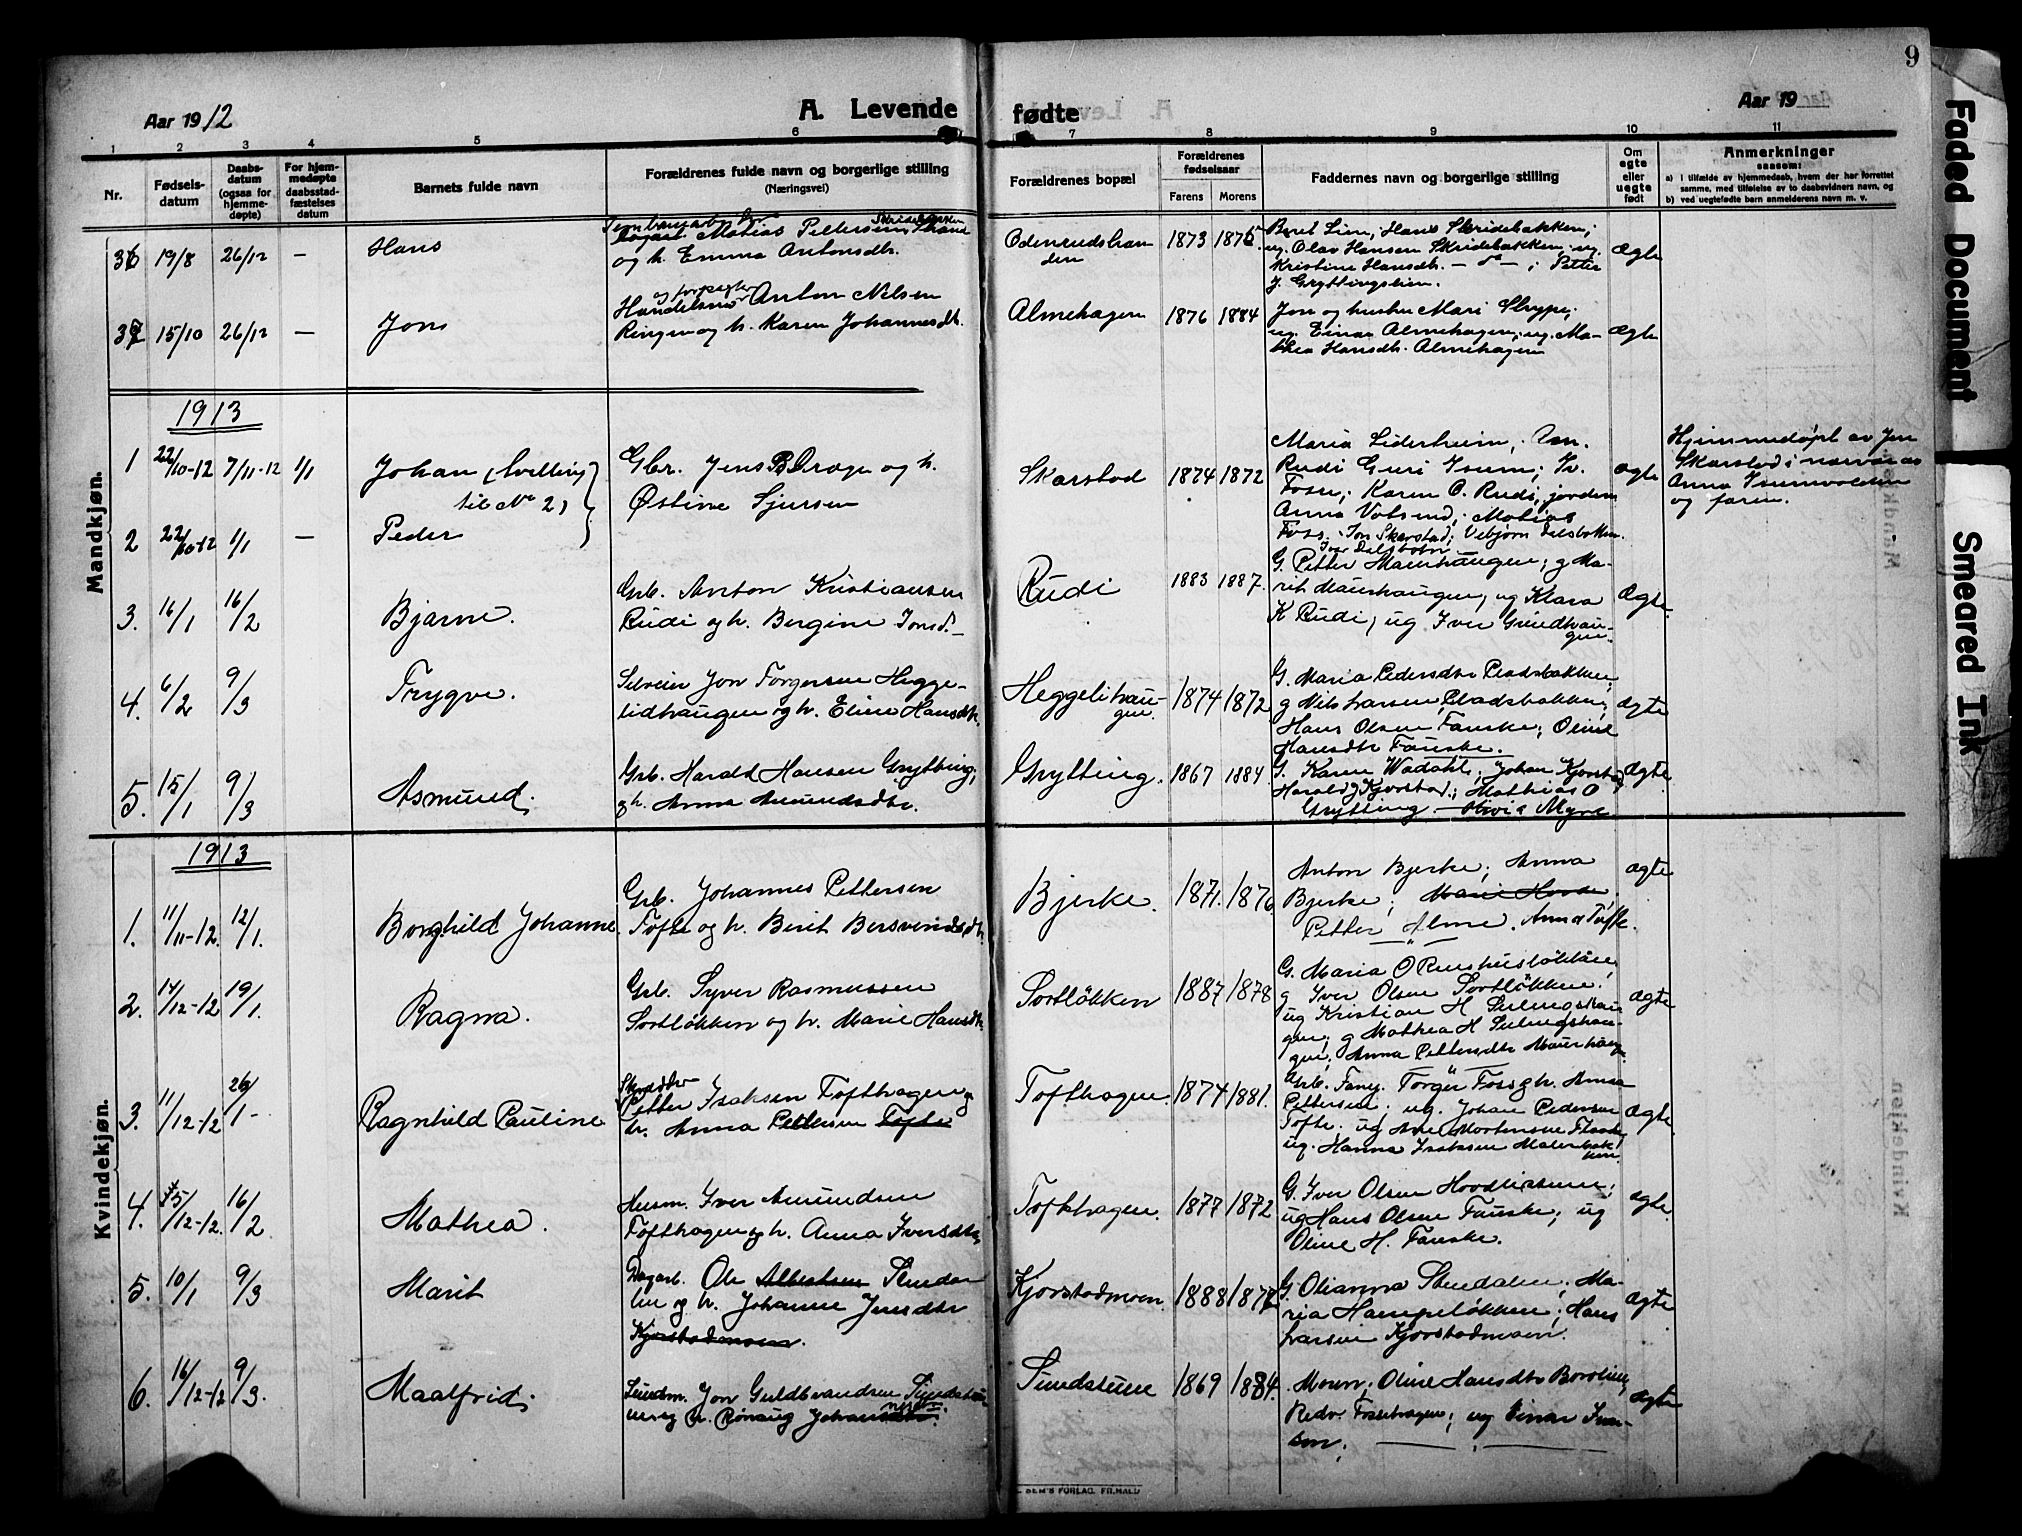 9
Aar 1912
A. Levende
fødte
Aar 19
1 2 3 4 5 6 7 8 9 10 11
Nr.
Fødsels-
datum
Daabs-
datum
(ogsaa for
hjemme-
døpte)
For hjem-
medøpte
daabsstad-
fæstelses
datum
Barnets fulde navn
Forældrenes fulde navn og borgerlige stilling
(Næringsvei)
Forældrenes bopæl
Forældrenes
fødselsaar
Farens Morens
Faddernes navn og borgerlige stilling
Om
egte
eller
uegte
født
Anmerkninger
saasom:
a) i tilfælde av hjemmedaab, hvem der har forrettet
samme, med tilføielse av to daabsvidners navn, og
b) ved uegtefødte barn anmelderens navn m. v.
36 19/8 26/12 — Hans
Matias Pettersen Strand
og h. Emma Antonsdtr.
1873 1875
Berit Lien; Hans Skridebakken;
ug. Olav Hansen Skridebakken; ug.
Kristine Hansdtr. — do — ; Petter
J. Gryttingslien.
Ægte
37 15/10 26/12 — Jon
og forpagter
Handelsm Anton Nilsen
Ringen og h. Karen Johannesdtr.
Almehagen 1876 1884
Jon og hustru Mari Strype;
ug. Einar Almehagen; ug. Ma-
thea Hansdtr. Almehagen
Ægte
Mandkjøn.
1913
1 22/10-12 7/11-12 1/1 Johan (tvilling
til No 2)
Gbr. Jens B. og h.
Østine Sjursen
Skarstad 1874 1872
Maria
Rudi Guri Isum; Iv.
Foss; Karen O. Rudi, jordem
Anna Volsend; Matias
Foss. Jon Skarstad; Vebjørn Dalsbotten.
Iver Dalsbotn
ægte
Hjemmedøpt av Jen
Skarstad i nærvær av
Anna Isumvolden
og faren.
2 22/10-12 1/1 — Peder
3. 16/1 16/2 Bjarne.
Grb. Anton Kristiansen
Rudi og h. Bergine Jonsd.
Rudi 1883 1887.
G. Petter Maurhaugen; g Ma-
rit Maurhaugen; ug Klara
K Rudi; ug Iver Grindhau-
gen.
Ægte
4. 6/2 9/3 Trygve.
Selveier Jon Torgersen Hegge-
lidhaugen og h. Eline Hansdtr.
Heggelihau-
gen. 1874 1872
G. Maria Pedersdtr Pladsbakken;
g Nils Larsen Pladsbakken;
Hans Olsen Fauske; Oline
Hansdtr Fauske.
ægte
5. 15/1 9/3 Asmund.
Grb. Harald Hansen Grytting,
g h. Anna Amundsdtr.
Grytting. 1867 1884
G. Karen Wadahl; Johan Kjorstad
Harald Kjorstad; Mathias O
Grytting — Olivia Myre
Ægte
Kvindekjøn.
1913
1. 11/11-12. 12/1. Borghild Johanne.
Grb. Johannes Pettersen
Tofte og h. Berit Bersvendsdtr.
Bjerke. 1871. 1876
Anton Bjerke; Anna
Bjerke; Marie Hovde
Petter Alme. Anna Tofte.
ægte
2. 14/12-12 19/1. Ragna.
Grb. Syver Rasmussen
Sortløkken og h. Marie Hansdtr.
Sortløkken 1887 1878
G. Maria O
g Iver Olsen Sortløkken.
ug Kristian H
gen; g Mathea H
gen; Anna Pettersdtr Maurhaug
ægte
3. 11/12-12 26/1- Ragnhild Pauline
Skrædder
Petter Isaksen Tofthagen og
h. Anna Pettersen Tofte
Tofthagen. 1874 1881.
Grb. Torger Foss g h. Anna
Pettersen; ug. Johan Pedersen
Tofte. ug Ane Mortensen
ug. Hanna Isaksen Malerbak
ken.
Ægte
4. 15/12-12. 16/2 Mathea.
Husm. Iver Amundsen
Tofthagen og h. Anna Iversdtr.
Tofthagen. 1877 1872
G. Iver Olsen
ug Hans Olsen Fauske; ug
Oline H. Fauske.
ægte.
5. 10/1 9/3 Marit
Dagarb. Ole Albertsen Stenda-
len og h. Johanne Jensdtr
Kjorstadmoen.
Kjorstadmoen 1888
G. Olianna Stendalen; Ma-
ria Hampeløkken; Hans
Larsen Kjorstadmoen.
Ægte
6. 16/12-12 9/3. Maalfrid.
Jon Guldbrandsen Sundstu-
en og h. Rønaug Johansdtr.
Sundstuen 1869 1884.
Moren; Oline Hansdtr
Redv. Fossehagen; ug Einar Iver-
sen.
ægte
SEM'S FORLAG, FR.HALD
Faded Document
Smeared Ink